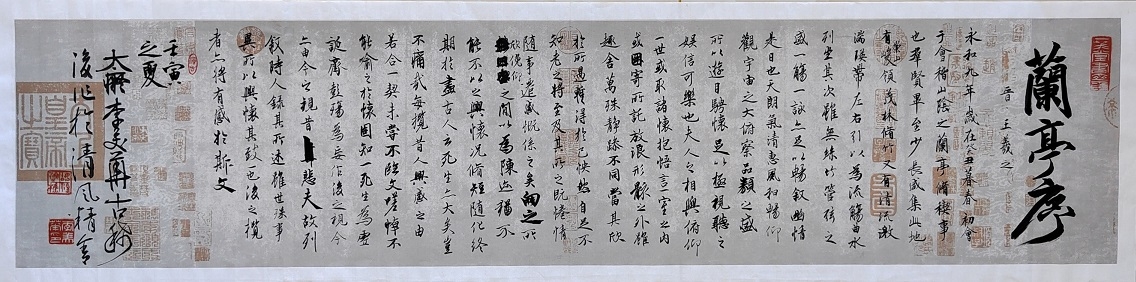 蘭亭序
晋 王羲之
永和九年歲在癸丑暮春之初會
于會稽山陰之蘭亭脩稧事
也羣賢畢至少長咸集此地
有崇山峻領茂林脩竹又有清流激
湍暎帶左右引以為流觴曲水
列坐其次雖無絲竹管弦之
盛一觴一詠亦足以暢叙幽情
是日也天朗氣清惠風和暢仰
觀宇宙之大俯察品類之盛
所以遊目騁懷足以極視聽之
娛信可樂也夫人之相與俯仰
一世或取諸懷抱悟言一室之內
或因寄所託放浪形骸之外雖
趣舍萬殊靜躁不同當其欣
於所遇暫得於己怏然自足不
知老之將至及其所之既惓情
隨事遷感慨係之矣向之所
欣俛仰之間以為陳迹猶不
能不以之興懷況脩短隨化終
期於盡古人云死生亦大矣豈
不痛哉每攬昔人興感之由
若合一契未嘗不臨文嗟悼不
能喻之於懷固知一死生為虛
誕齊彭殤為妄作後之視今
亦由今之視昔悲夫故列
叙時人錄其所述雖世殊事
異所以興懷其致一也後之攬
者亦將有感於斯文
壬寅
之夏
後 於清風精舍